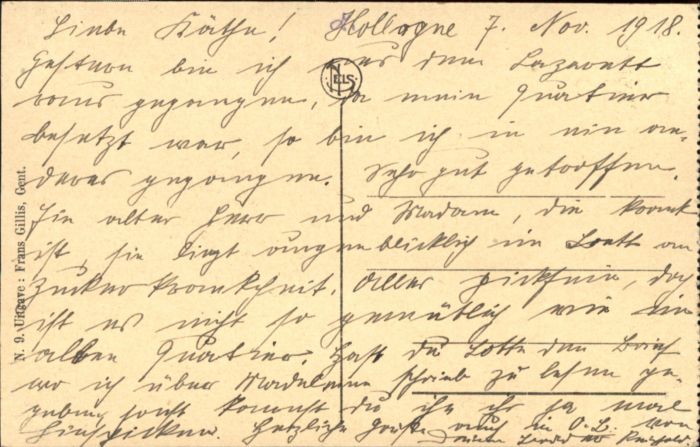 Liebe Käthe! Hollogne 7. Nov. 1918.
Gestern bin ich aus dem Lazarett
raus gegangen, da mein Quatier
besetzt war, so bin ich in ein an-
deres gegangen. Sehr gut getroffen.
Ein alter Herr und Madam, die krank
ist, sie liegt augenblicklich im Bett an
Zuckerkrankheit. Alles pickfein, doch
ist es nicht so gemütlich wie im
alten Quatier. Hast du Lotte den Brief
wo ich über Madelene schrieb zu lesen ge-
geben, sonst kannst du ihr ihn ja mal
hinschicken. Herzliche Grüße auch an O. L. von
NELS
N. 9. Uitgave: Frans Gillis, Gent.